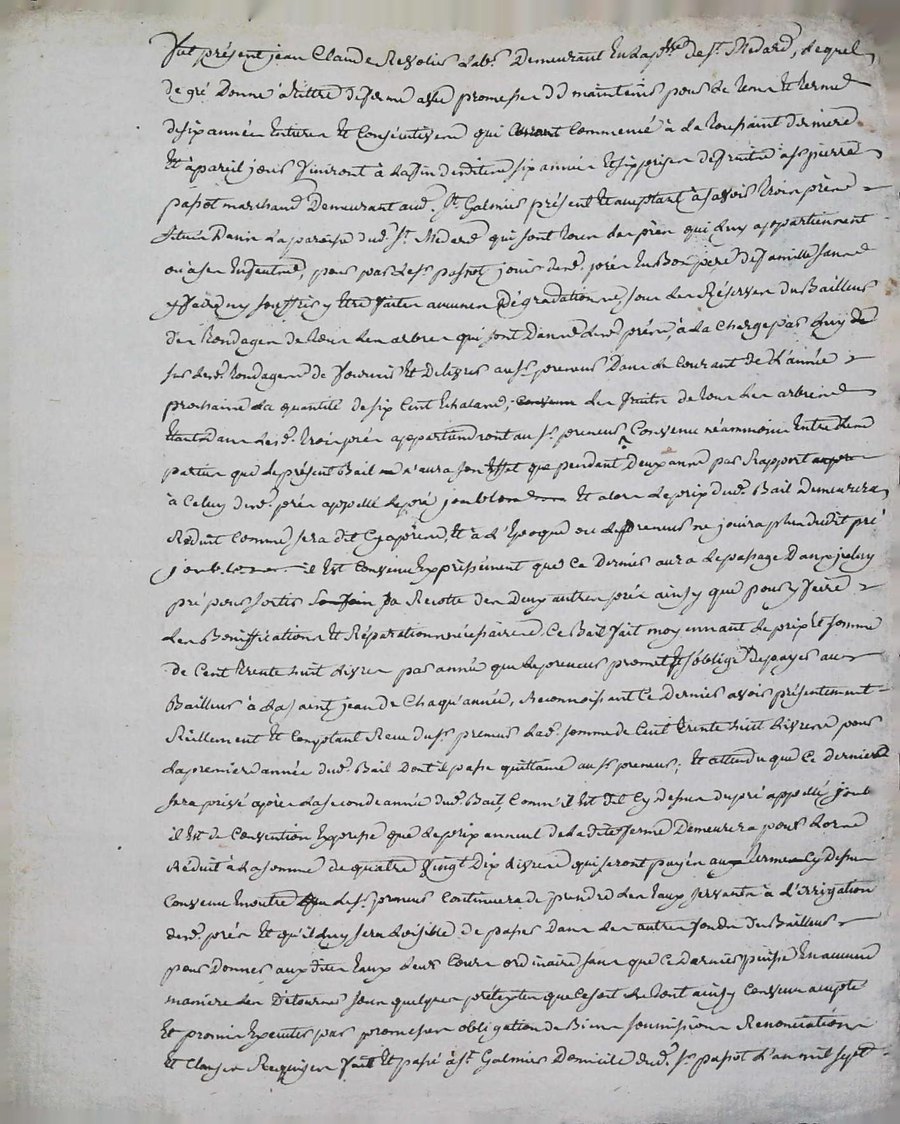 Fut présent jean Claude Revolier Lab.r Demeurant En La p.sse de S.t Medard, Lequel
de gré Donne à tittre de ferme avec promesse de maintenir pour Le tems Et terme
de six années Entieres Et Consécutives qui Commencé à La toussaint derniere
Et à pareil jour finiront à La fin desdites six année Et six prises de fruits à s.r pierre
passot marchand Demeurant aud. S.t Galmier présent Et acceptant à sçavoir trois prés
situés Dans La paroisse dud. S.t Medard qui sont tous Les prés qui Luy appartiennent
ou à ses Enfants, pour par Led. s.r passot jouir desd. prés En Bon pere de famille sans
y faire ny souffrir y Etre faites aucunes dégradations, sous Les Réserves du Bailleur
Des tondages de tous Les arbres qui sont Dans Lesd. prés, à La Charge par Luy de
sur Lesd. tondages de fournir Et Delivrer au s.r preneur Dans Le Courant de L'année
prochaine La quantité de six Cent Echalats, Les fruits de tous Les arbres
Etants dans Lesd. trois prés appartiendront au s.r preneur, Convenu néammoins Entre Les
parties que Le présent Bail n'aura son Effet que pendant Deux ans par Rapport
à Celuy desd. prés appellé Le pré joublond Et alors Le prix dud. Bail Demeurera
Réduit Comme sera dit Cy après, Et à L'Epoque ou Led. preneur ne jouira plus dudit pré
il Est Convenu Expressément que Ce Dernier aura Le passage Dans jceluy
pré pour sortir La Recolte des Deux autres prés ainsy que pour y faire
Les Bonifications Et Réparations nécessaires. Ce Bail fait moyennant Le prix Et somme
de Cent trente huit Livres par année que Le preneur promet Et s'oblige de payer au
Bailleur à La saint jean de Chaqu'année, Reconnoissant Ce Dernier avoir présentement
Réellement Et Comptant Reçu du s.r preneur Lad. somme de Cent trente huit Livres pour
La premiere année dud. Bail Dont il passe quittance au s.r preneur; Et attendu que Ce dernier
sera privé après La seconde année dud. Bail, Comme il Est dit Cy dessus du pré appellé
il Est de Convention Expresse que Le prix annuel de La dite ferme Demeurera pour Lors
Réduit à La somme de quatre vingt Dix Livres qui seront payés aux termes Cy dessus
Convenu Enoutre Led. s.r preneur Continuera de prendre Les Eaux servants à L'irrigation
desd. prés Et qu'il Luy sera Loisible de passer Dans Les autres fonds du Bailleur
pour Donner aux dites Eaux Leur Cours ordinaire sans que Ce Dernier puisse En aucune
maniere Les Détourner sous quelques pretextes que Ce soit Le tout ainsy Convenu accepté
Et promis Executer par promesses obligation de Biens soumissions Renonciations
Et Clauses Requises fait Et passé à S.t Galmier Domicile dud. s.r passot L'an mil sept